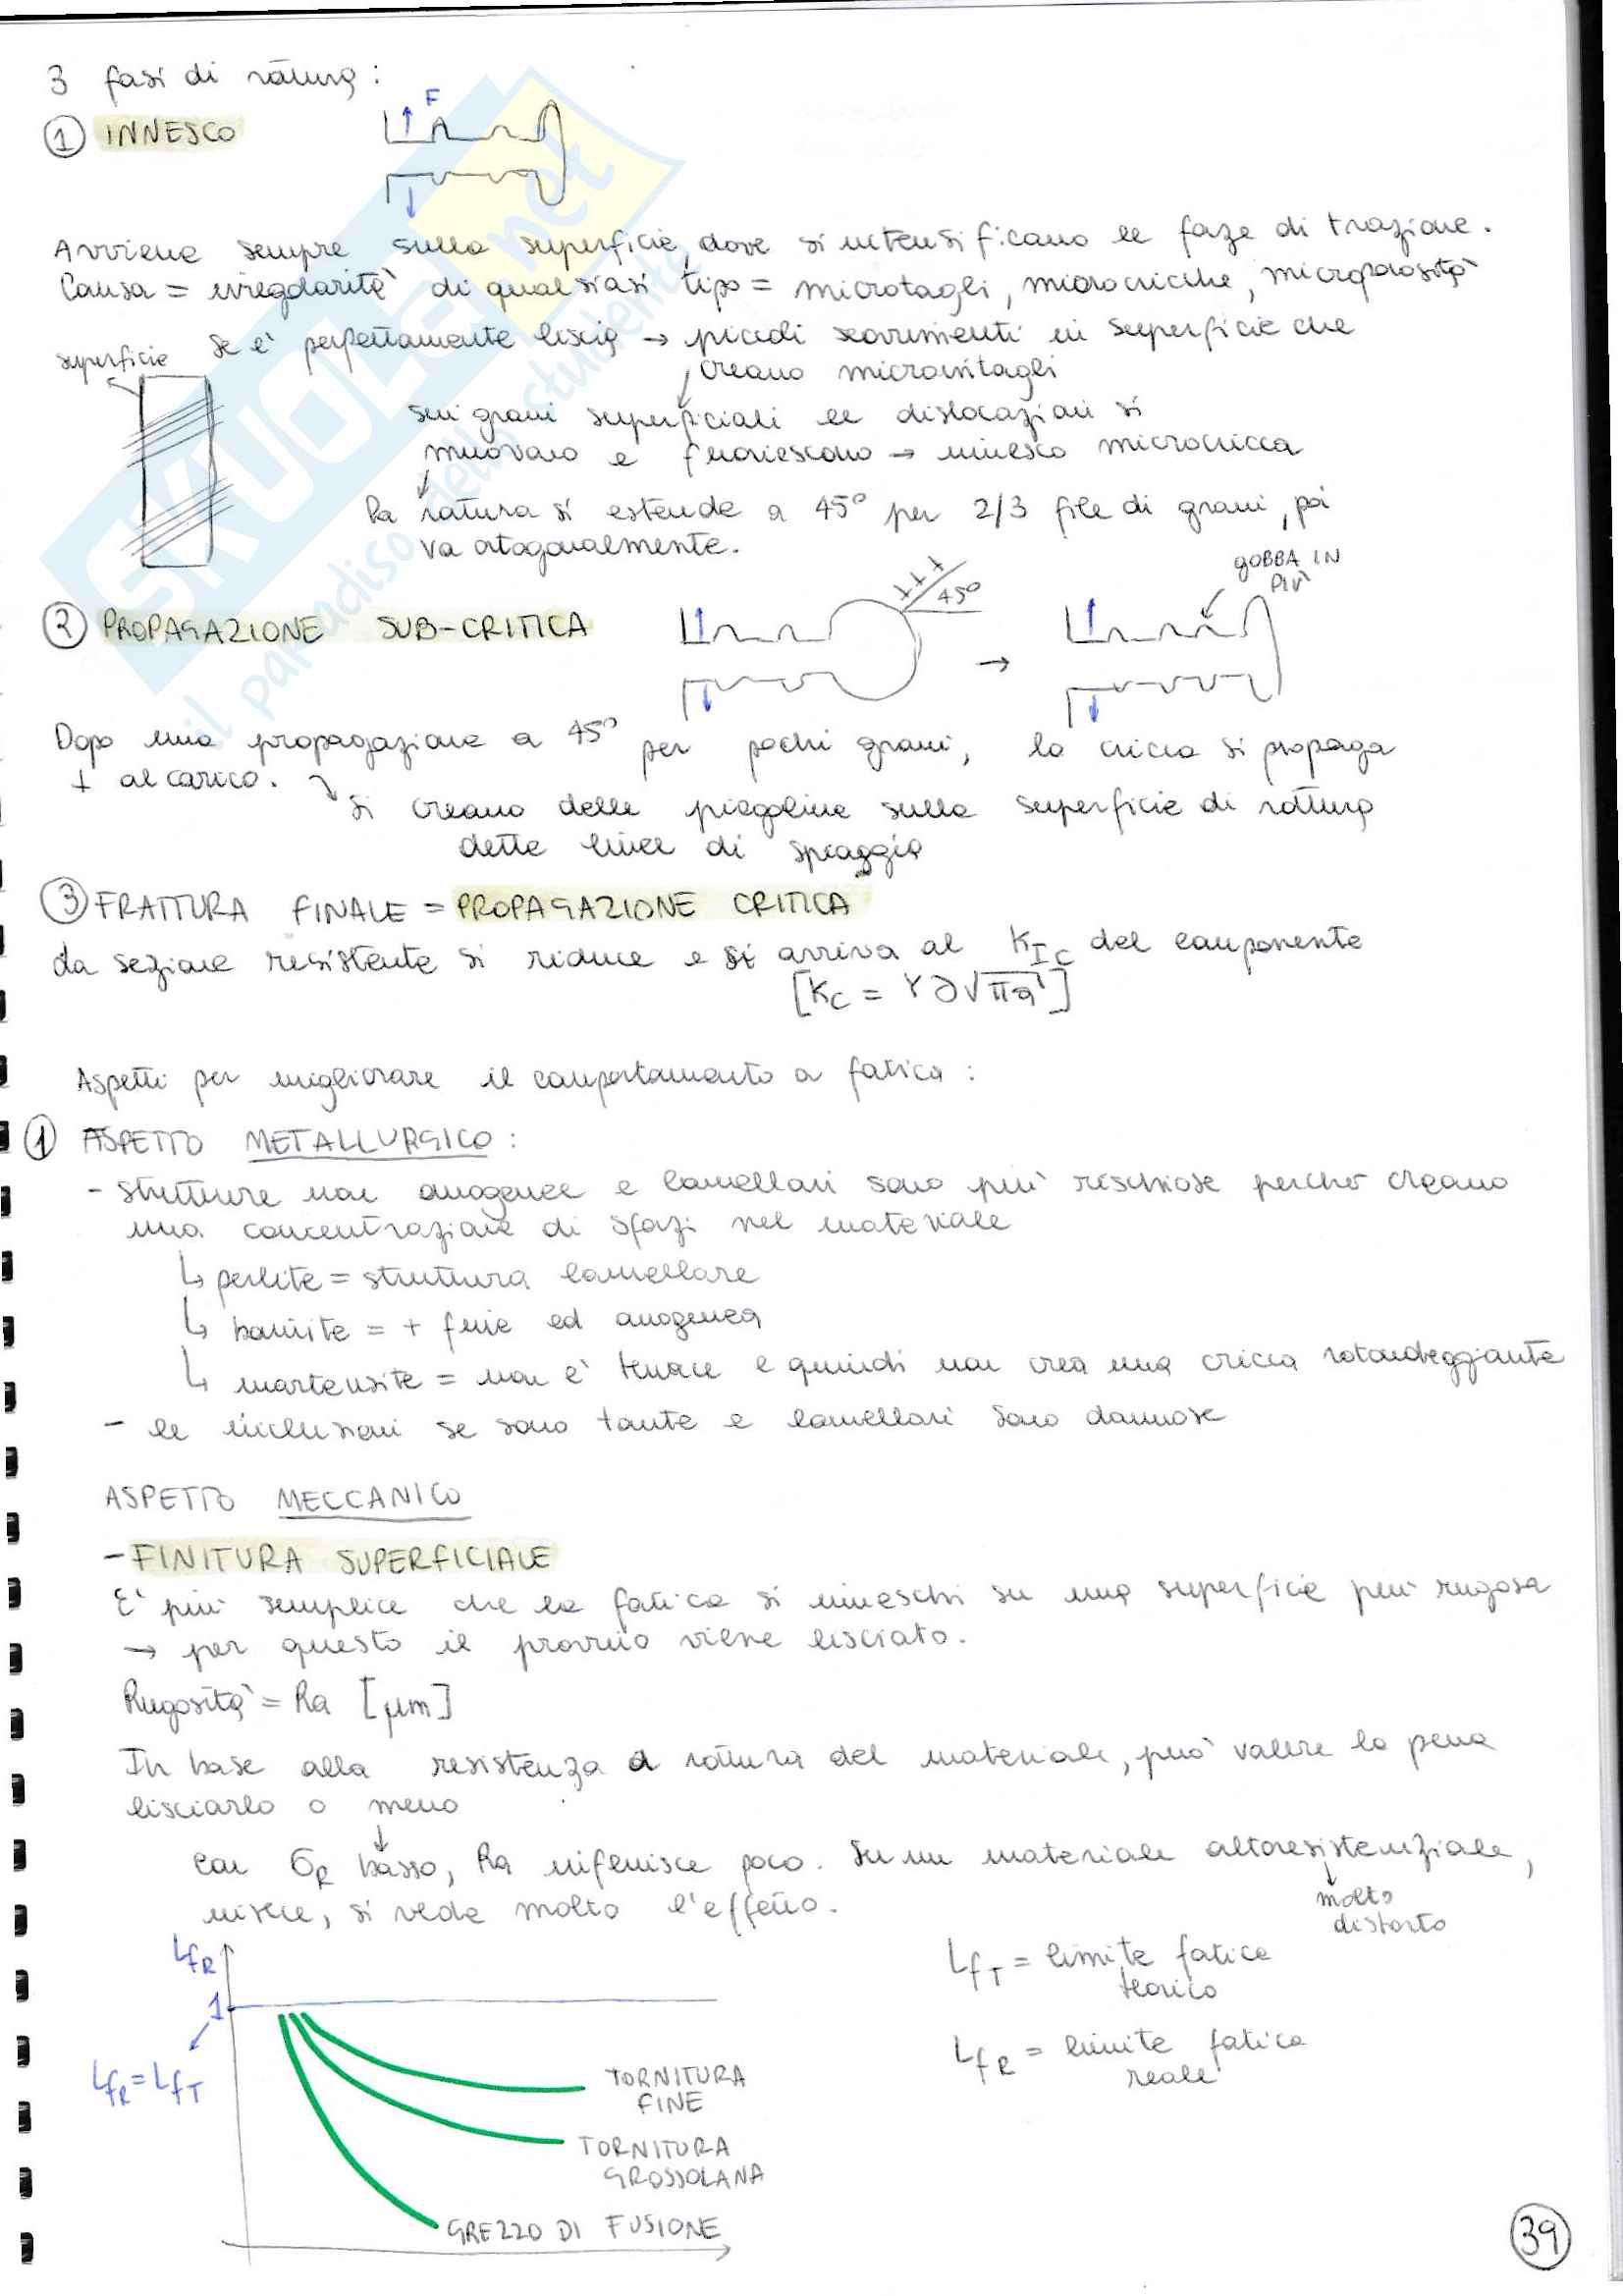 3 fasi di rottura:
① INNESCO
F
Avviene sempre sulla superficie, dove si intensificano le forze di trazione.
Causa = irregolarità di qualsiasi tipo = microtagli, microcricche, microporosità
superficie
Se è perfettamente liscia → piccoli scorrimenti in superficie che
creano microintagli
sui grani superficiali le dislocazioni si
muovono e fuoriescono → innesco microcricca
la rottura si estende a 45° per 2/3 file di grani, poi
va ortogonalmente.
② PROPAGAZIONE SUB-CRITICA
45°
→
GOBBA IN
PIÙ
Dopo una propagazione a 45° per pochi grani, la cricca si propaga
⊥ al carico.
si creano delle piegoline sulla superficie di rottura
dette linee di spiaggia
③ FRATTURA FINALE = PROPAGAZIONE CRITICA
La sezione resistente si riduce e si arriva al KIC del componente
[KC = Y∂√πa]
Aspetti per migliorare il comportamento a fatica:
① ASPETTO METALLURGICO:
- strutture non omogenee e lamellari sono più rischiose perché creano
una concentrazione di sforzi nel materiale
↳ perlite = struttura lamellare
↳ bainite = + fine ed omogenea
↳ martensite = non è tenace e quindi non crea una cricca rotondeggiante
- le inclusioni se sono tante e lamellari sono dannose
ASPETTO MECCANICO
- FINITURA SUPERFICIALE
E' più semplice che la fatica si inneschi su una superficie più rugosa
→ per questo il provino viene lisciato.
Rugosità = Ra [μm]
In base alla resistenza a rottura del materiale, può valere la pena
lisciarlo o meno
con σR basso, Ra influisce poco. Su un materiale altoresistenziale,
invece, si vede molto l'effetto.
molto
distorto
LfR
1
LfR = LfT
TORNITURA
FINE
TORNITURA
GROSSOLANA
GREZZO DI FUSIONE
LfT = limite fatica
teorico
LfR = limite fatica
reale
39
SKUOLA.net
il paradiso dello studente